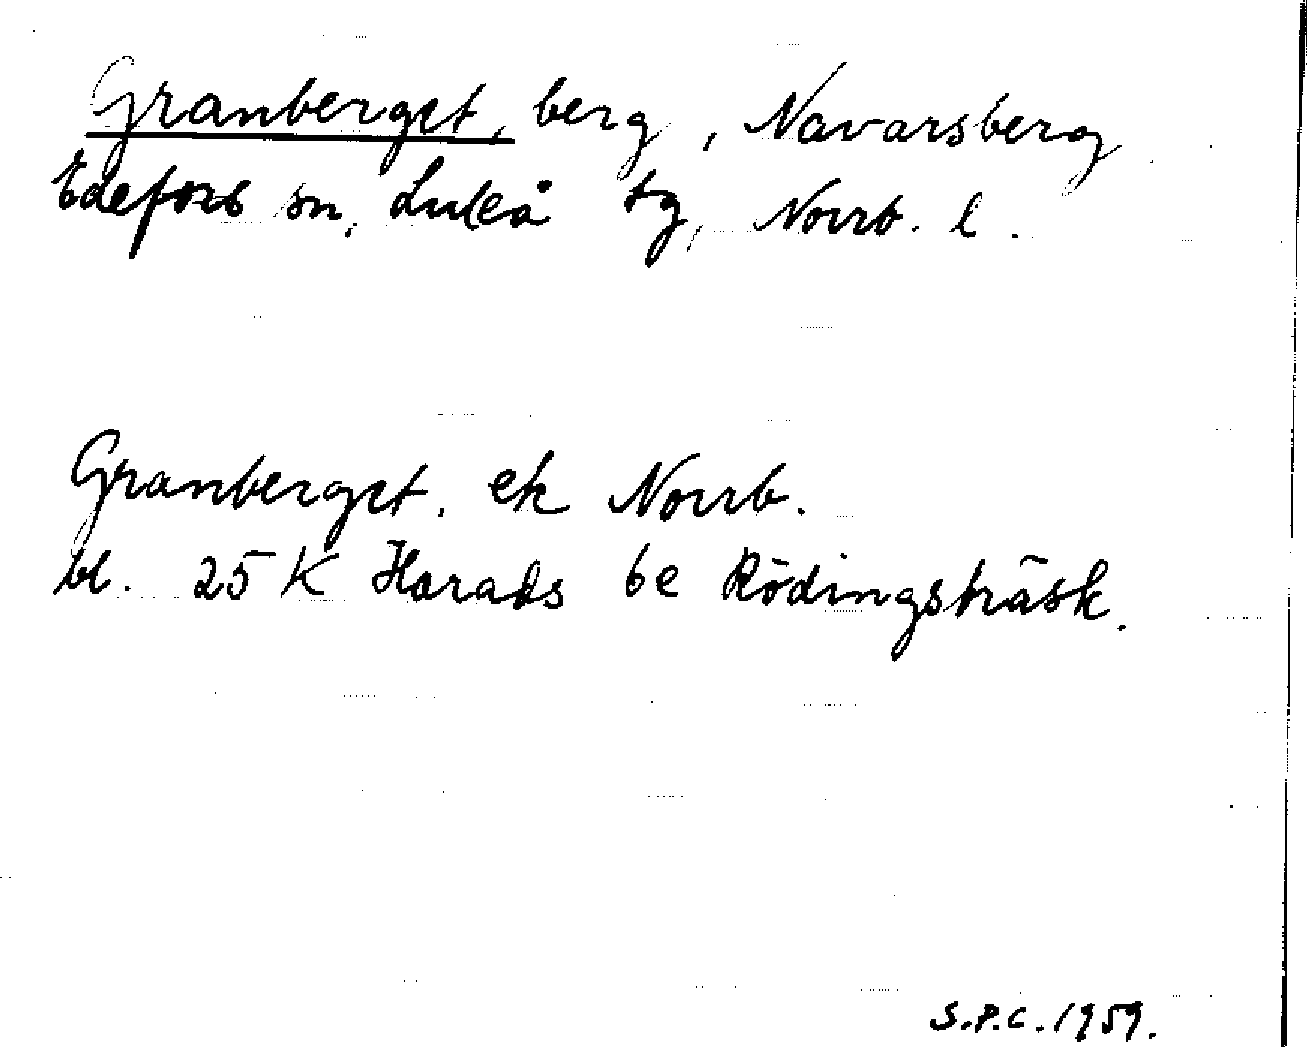 Granberget, berg, Navarsberg
Edefors sn, Luleå tg, Norrb. l.
Granberget. ek Norrb.
bl. 25 K Harads 6e Rödingsträsk.
S.P.C. 1959.